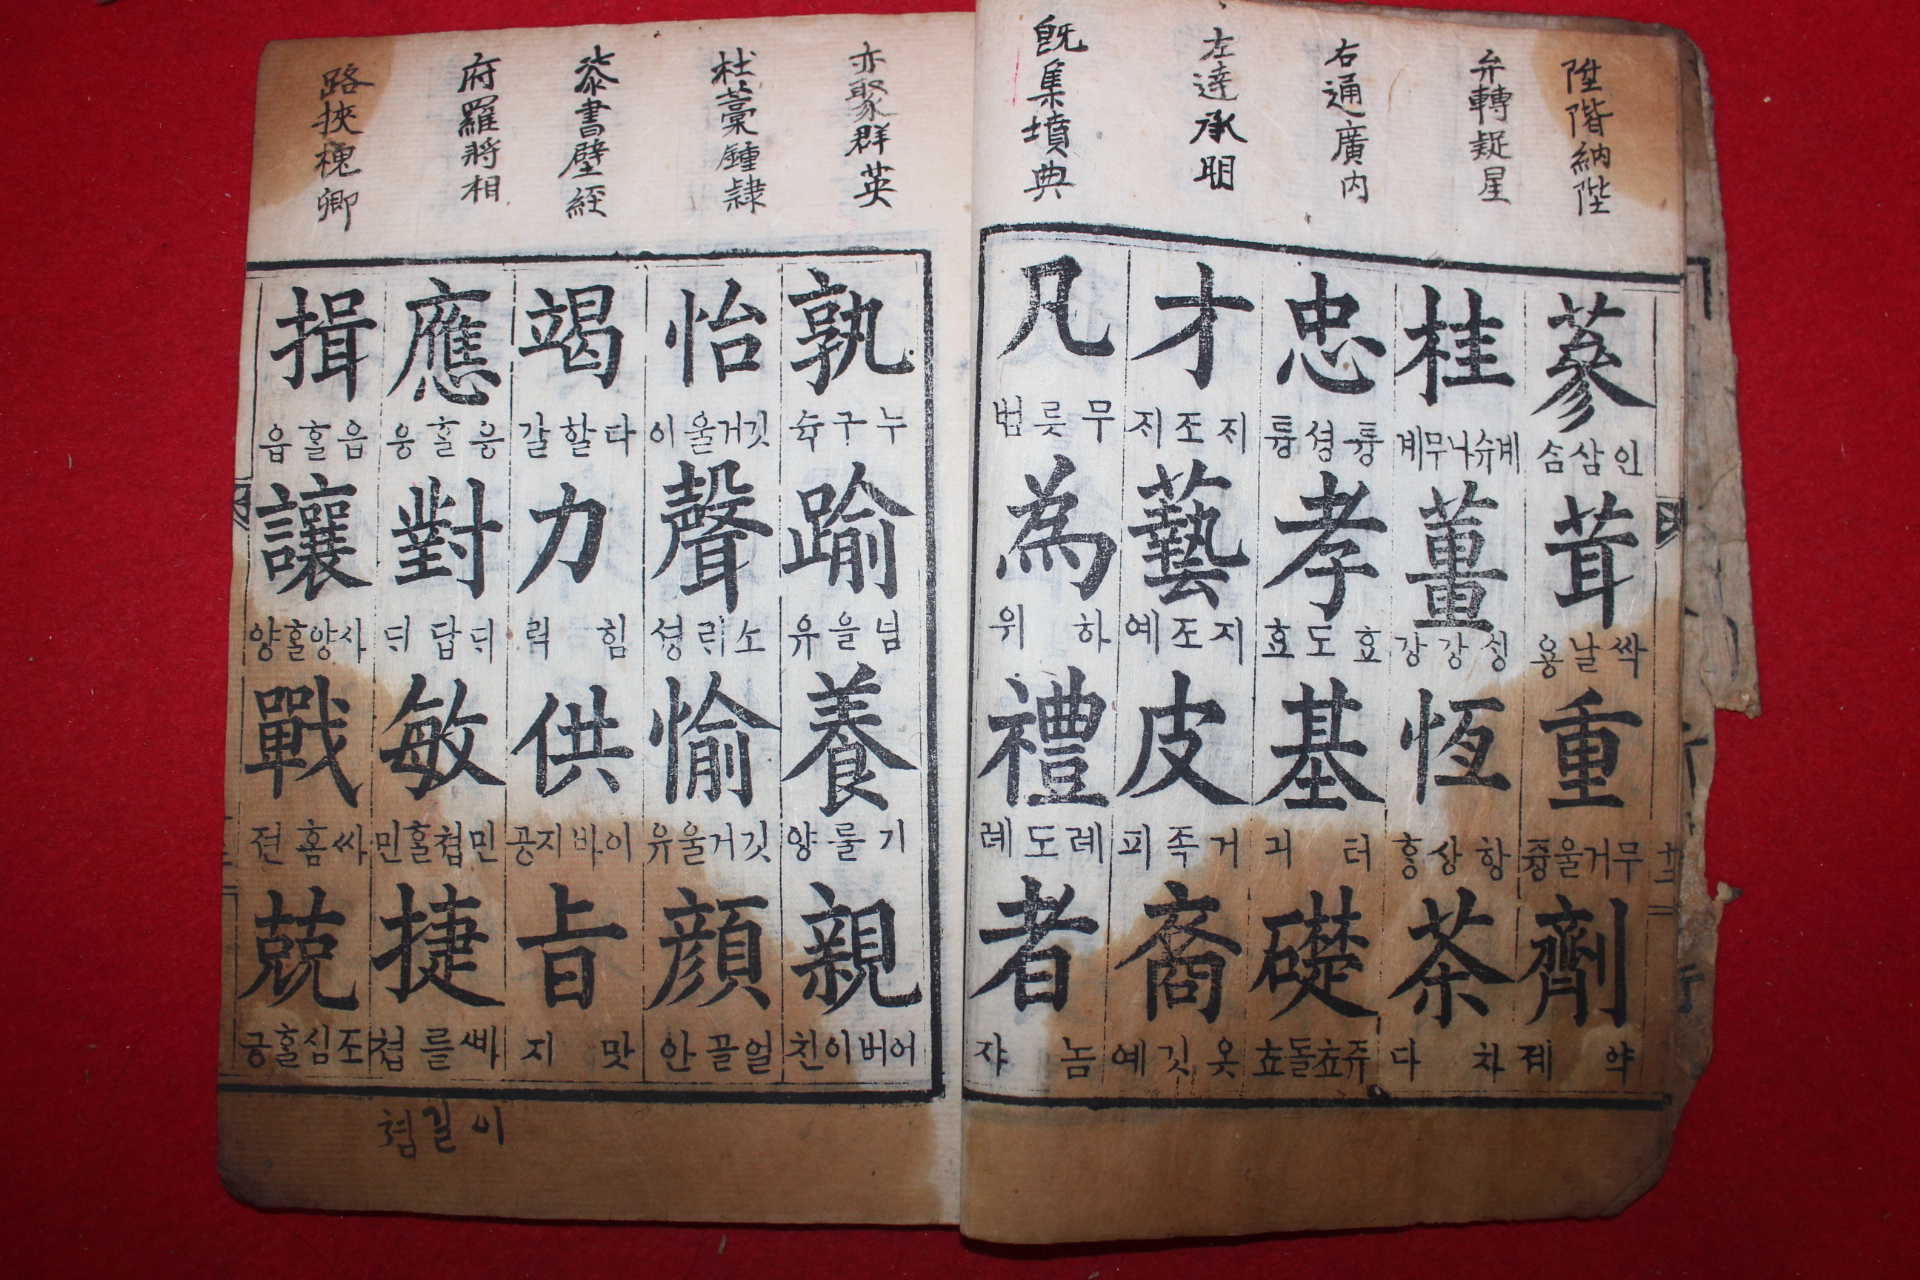 陞階納陛
弁轉疑星
右通廣內
左達承明
旣集墳典
亦聚群英
杜藁鍾隷
漆書壁經
府羅將相
路挾槐卿
蔘 인삼슴 茸 싹날용 重 무거울즁 劑 약졔
桂 계슈나무계 薑 싱강강 恆 항상흥 茶 차다
忠 튱셩튱 孝 효도효 基 터긔 礎 쥬쵸돌쵸
才 지조지 藝 지조예 皮 거족피 裔 옷깃예
凡 무릇범 為 하위 禮 례도례 者 놈쟈
孰 누구슉 踰 넘을유 養 기룰양 親 어버이친
怡 깃거울이 聲 소릐셩 愉 깃거울유 顔 얼골안
竭 다할갈 力 힘력 供 이바지공 旨 맛지
應 응홀응 對 디답디 敏 민쳡홀민 捷 ᄲᅡ를쳡
揖 읍홀읍 讓 사양홀양 戰 싸홈젼 兢 조심홀긍
이길쳠
十二